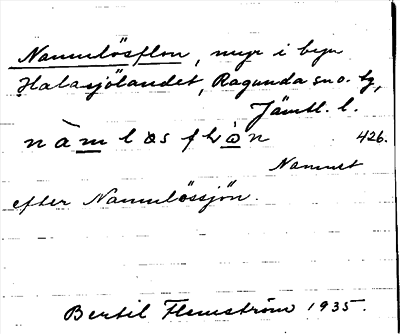 Namnlösflon, myr i byn
Halasjölandet, Ragunda sn o. tg,
Jämtl. l.
nàmløsflòn 426.
Namnet
efter Namnlössjön.
Bertil Flemström 1935.